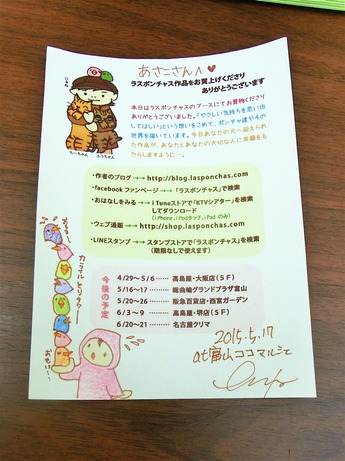 あさこさんへ♥
ラスポンチャス作品をお買上げくださり
ありがとうございます
本日はラスポンチャスのブースにてお買物くださり
ありがとうございました。「やさしい気持ちを思い出
してほしい」という想いをこめて、ポンチャ達やその
世界を描いています。今日あなたの元へ迎えられ
た作品が、あなたとあなたの大切な人に笑顔をも
たらしますように…。
・作者のブログ →→ http://blog.lasponchas.com
・facebook ファンページ →→「ラスポンチャス」で検索
・おはなしをみる →→ iTuneストアで「KTVシアター」を検索
してダウンロード
(iPhone、iPodタッチ、iPad のみ)
・ウェブ通販 →→ http://shop.lasponchas.com
・LINEスタンプ →→ スタンプストアで「ラスポンチャス」を検索
(期限なしで使えます)
今後の予定
4/29～5/6 …… 高島屋・大阪店(5F)
5/16～17 …… 総曲輪グランドプラザ富山
5/20～26 …… 阪急百貨店・西宮ガーデン
6/3～9 …… 高島屋・堺店(5F)
6/20～21 …… 名古屋クリマ
カラフルとりタワー
おもい…
2015.5.17
at富山ココマルシェ